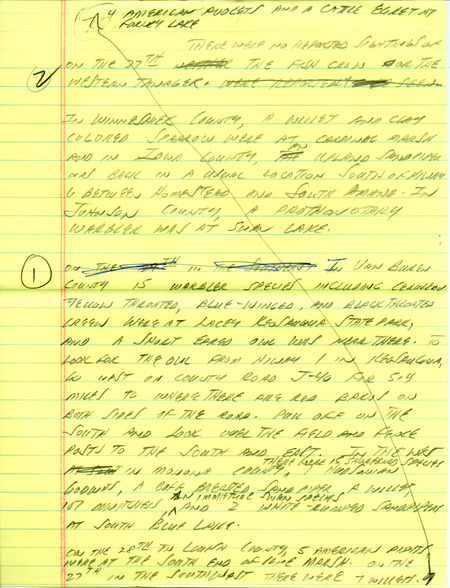 4 AMERICAN AVOCETS AND A CATTLE EGRET AT
FORNEY LAKE
THERE WERE NO REPORTED SIGHTINGS OF
2
ON THE 27TH THE FISH CROW OR THE
WESTERN TANAGER. WERE REPORTED SEEN.
IN WINNESHIEK COUNTY, A WILLET AND CLAY
COLORED SPARROW WERE AT CARDINAL MARSH
AND IN IOWA COUNTY, AN UPLAND SANDPIPER
WAS BACK IN A USUAL LOCATION SOUTH OF HIWAY
6 BETWEEN HOMESTEAD AND SOUTH AMANA. IN
JOHNSON COUNTY, A PROTHONOTARY
WARBLER WAS AT SWAN LAKE.
1
ON THE TH IN THE IN VAN BUREN
COUNTY 15 WARBLER SPECIES INCLUDING CERULEAN
YELLOW THROATED, BLUE-WINGED, AND BLACK THROATED
GREEN WERE AT LACEY KEOSAUQUA STATE PARK,
AND A SHORT EARED OWL WAS NEAR THERE. TO
LOOK FOR THE OWL FROM HIWAY 1 IN KEOSAUQUA,
GO WEST ON COUNTY ROAD J-40 FOR
MILES TO WHERE THERE ARE RED BARNS ON
BOTH SIDES OF THE ROAD. PULL OFF ON THE
SOUTH AND LOOK OVER THE FIELD AND FENCE
POSTS TO THE SOUTH AND EAST. IN THE WEST
THERE WERE SHOREBIRD SPECIES
IN MONONA COUNTY, HUDSONIAN
GODWITS, A BUFF BREASTED SANDPIPER WILLET
AN IMMATURE SWAN SPECIES
DOWITCHERS, AND 2 WHITE-RUMPED SANDPIPERS
AT SOUTH BLUE LAKE.
ON THE 28TH IN LOUISA COUNTY, 5 AMERICAN PIPITS
WERE AT THE SOUTH END OF CONE MARSH. ON THE
27TH IN THE SOUTHWEST THERE WERE 7 WILLETS,